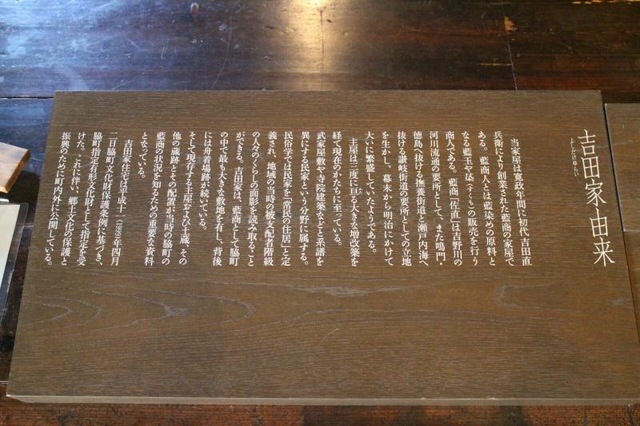 吉田家由来
よしだけゆらい
当家屋は寛政年間に初代吉田直
兵衛により創業された藍商の家屋で
ある。藍商人とは藍染めの原料と
なる藍玉や蒅（すくも）の販売を行う
商人である。藍商「佐直」は吉野川の
河川流通の要所として、また鳴門・
徳島へ抜ける撫養街道と瀬戸内海へ
抜ける讃岐街道の要所としての立地
を生かし、幕末から明治にかけて
大いに繁盛していたようである。
主屋は三度に亘る大きな増改築を
経て現在のかたちに至っている。
武家屋敷や寺院建築などと系譜を
異にする民家という分野に属する。
民俗学では民家を「常民の住居」と定
義され、地域の当時の被支配者階級
の人々のくらしの面影を読み取ること
ができる。吉田家は、藍商として脇町
の中で最も大きな敷地を有し、背後
には舟着場跡が続いている。
そして現存する主屋および土蔵、その
他の遺跡とその配置が当時の脇町の
藍商の状況を知るための重要な資料
となっている。
吉田家住宅は平成十一（1999）年四月
二日脇町文化財保護条例に基づき、
脇町指定有形文化財として指定を受
けた。これに伴い、郷土文化の保護と
振興のために町内外に公開している。